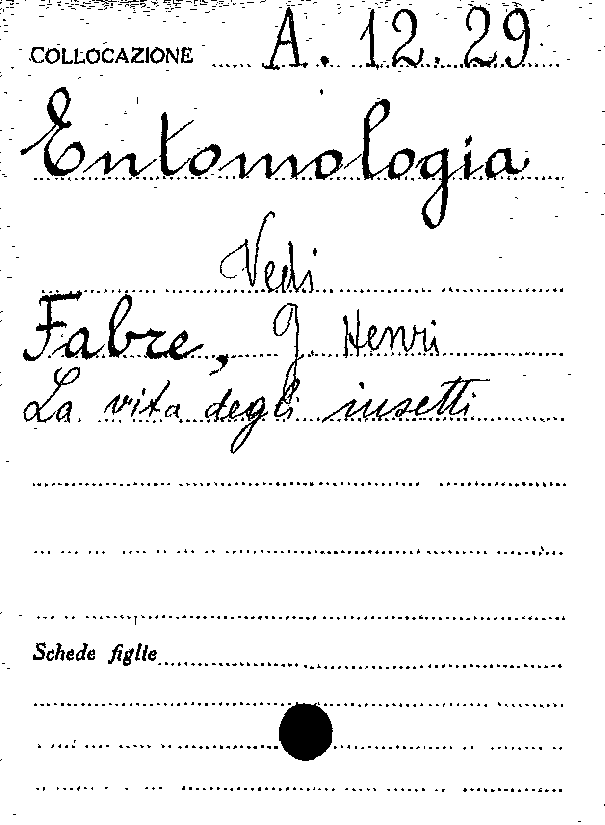 COLLOCAZIONE A. 12. 29
Entomologia
Vedi
Fabre, J. Henri
La vita degli insetti
Schede figlie